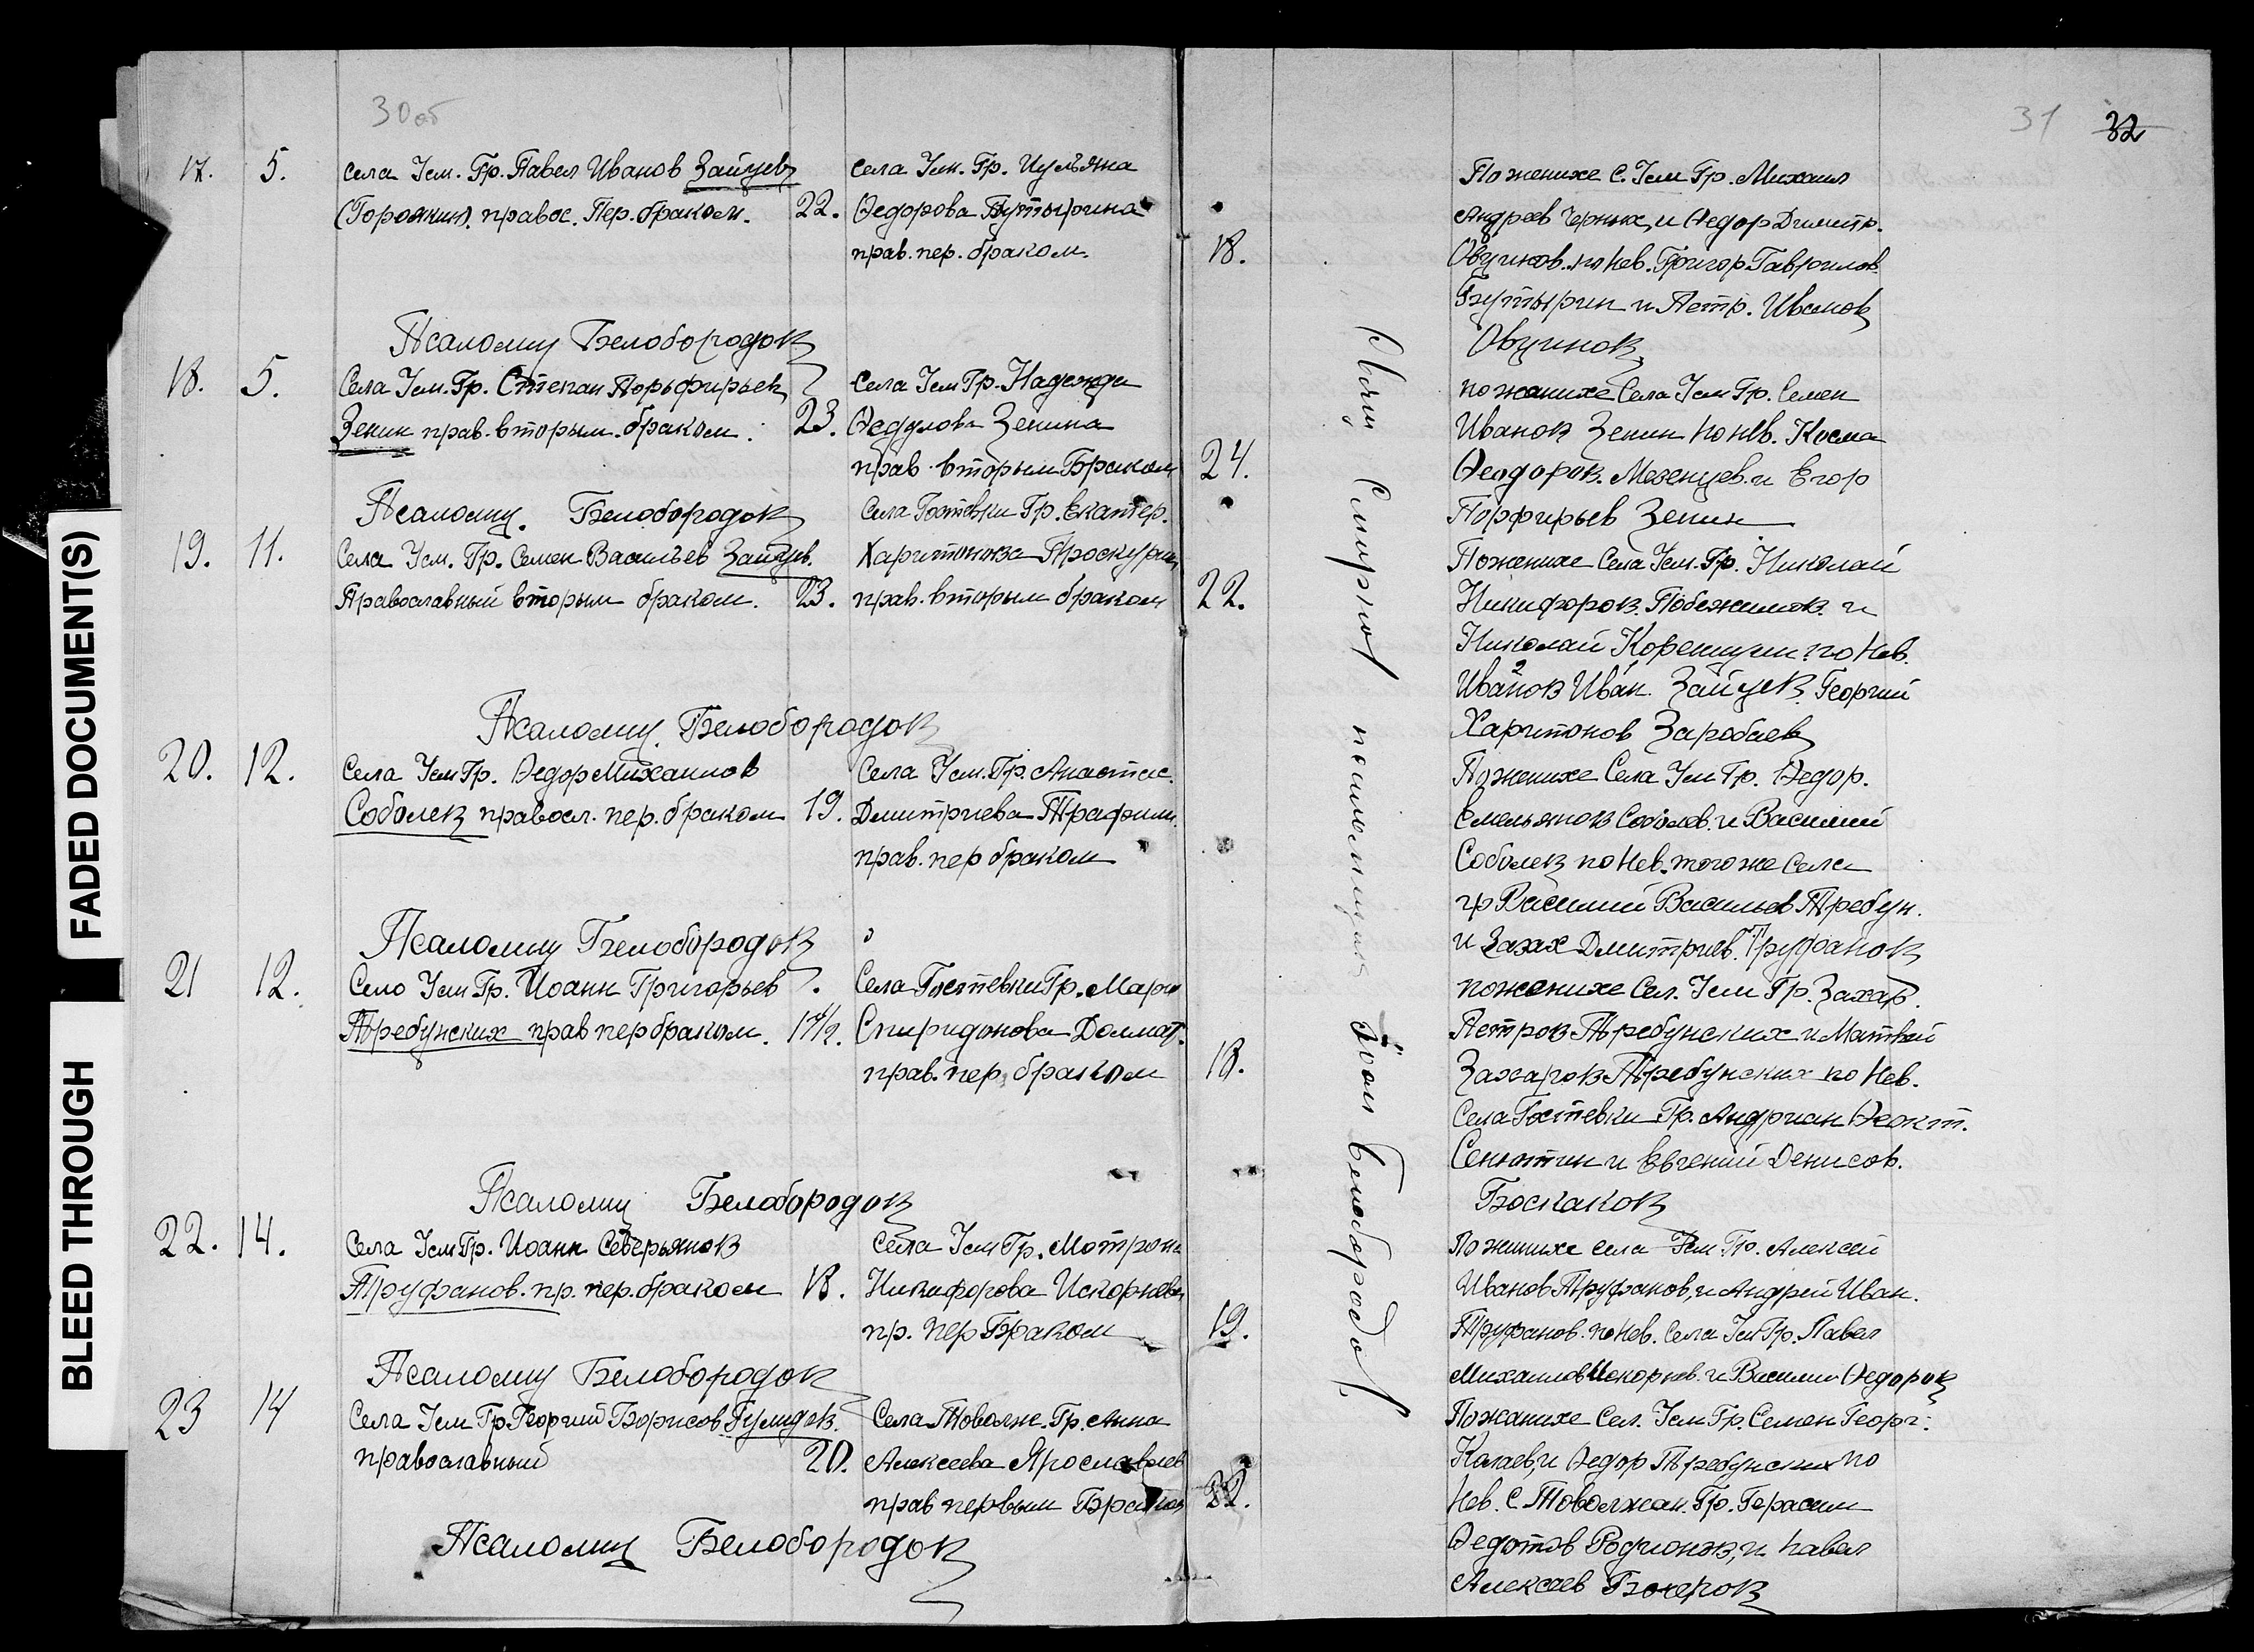 FADED DOCUMENT(S)
BLEED THROUGH
30 об
31 32
17. 5. села Усм. Гр. Павел Иванов Зайцев
(Горожкин). правос. Пер. браком. 22.
села Усм. Гр. Иульяна
Федорова Бутырина
прав. пер. браком. 18.
По женихе С. Усм Гр. Михаил
Андреев Черных, и Федор Димитр.
Овчинков. по Нев. Григор Гаврилов
Бутырин и Петр. Иванов
Овчинков
Псаломщ Белобородов
18. 5. Села Усм. Гр. Степан Порьфирьев
Зенин прав. вторым. браком. 23.
Села Усм Гр. Надежда
Федулова Зенина
прав. вторым Браком 24.
по жанихе Села Усм Гр. Семен
Иванов Зенин по Нев. Косма
Феодоров. Мезенцев. и Егор
Порфирьев Зенин
Псаломщ. Белобородов
19. 11. Села Усм. Гр. Семен Васильев Зайцев.
Православный вторым браком. 23.
Села Гостевки Гр. Екатер.
Харитонова Проскурин
прав. вторым браком 22.
По женихе Села Усм. Гр. Николай
Никифоров. Побежимов. и
Николай Корешун. по Нев.
Иванов Иван. Зайцев. Георгий
Харитонов
Псаломщ. Белобородов
20. 12. Села Усм Гр. Федор Михаилов
Соболев правосл. пер. браком 19.
Села Усм. Гр. Анастас.
Дмитриева Трафим.
прав. пер браком
По женихе Села Усм Гр. Федор.
Емельянов Соболев. и Василий
Соболев по Нев. того же Села
гр Василий Васильев Требун.
и Захах Дмитриев. Труфанов
Псаломщ Белобородов
21 12. Село Усм Гр. Иоанн Григорьев
Требунских прав пер браком. 17 1/2.
Села Гостевки Гр. Мари
Спиридонова Долмат.
прав. пер. браком 18.
по женихе Сел. Усм Гр. Захар.
Петров Требунских и Матвей
Захаров Требунских по Нев.
Села Гостевки Гр. Андриан Феокт.
Сенютин и Евгений Денисов.
Боскаков
Псаломщ Белобородов
22. 14. Села Усм Гр. Иоанн Северьянов
Труфанов. пр. пер. браком 18.
Села Усм Гр. Мотрона
Никифорова Искорнева
пр. Пер Браком 19.
По женихе села Усм Гр. Алексей
Иванов Труфанов, и Андрей Иван.
Труфанов. по Нев. Села Усм Гр. Павел
Михаилов Искорнев. и Василий Федоров
Псаломщ Белобородов
23 14 Села Усм Гр Георгий Борисов Гулидов.
православный 20.
Села Товолже. Гр. Анна
Алексеева Ярославлев
прав первым Браком 22.
По жанихе Сел. Усм Гр. Семен Георг:
Калаев, и Федор Требунских по
Нев. С. Товолжан. Гр. Герасим
Федотов Родионов, и павел
Алексеев
Псаломщ Белобородов
Белобородов